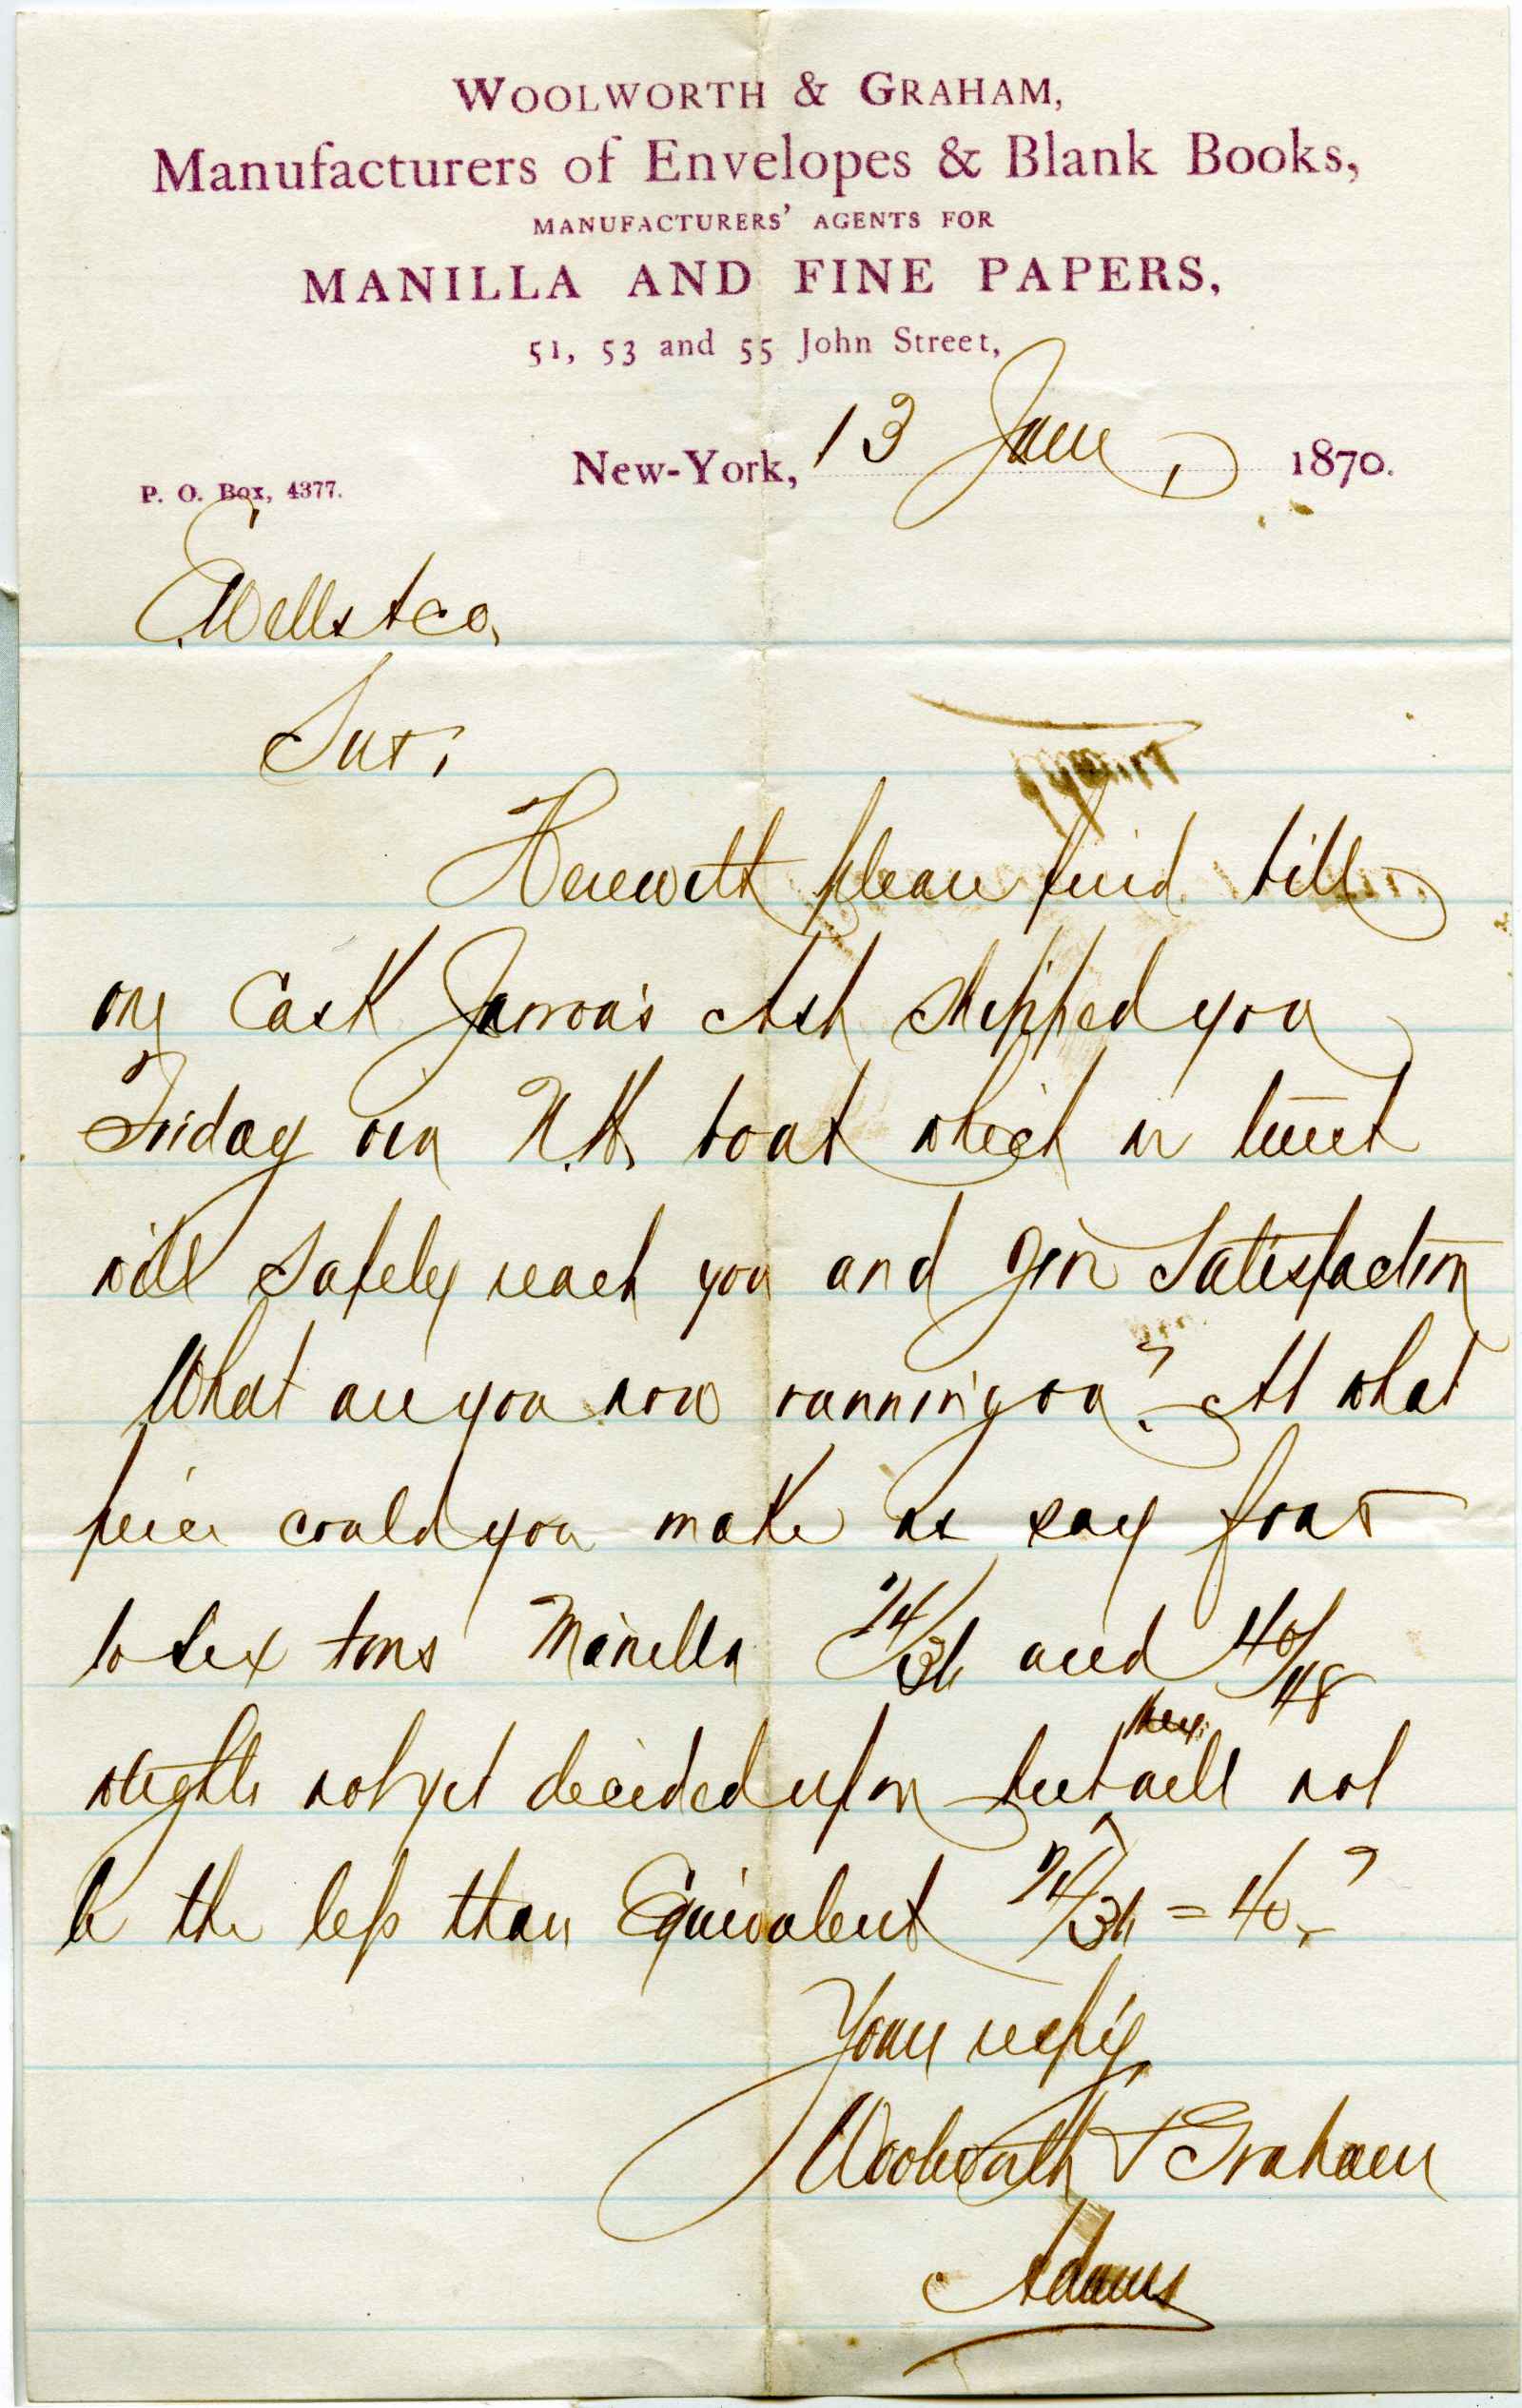 WOOLWORTH & GRAHAM,
Manufacturers of Envelopes & Blank Books,
MANUFACTURERS' AGENTS FOR
MANILLA AND FINE PAPERS,
51, 53 and 55 John Street,
New-York, 13 June, 1870.
P. O. Box, 4377.
C. Wells & Co,
Sirs,
Herewith please find bill
one Cask Ash shipped you
Friday via N.H. boat which we trust
will safely reach you and give Satisfaction
What are you now running on? At what
price could you make us say four
to six tons Manilla 24/36 and 40/48
weights not yet decided upon but they will not
be the less than Equivalent 24/36 = 40?
Yours resp'y,
Woolworth & Graham
Adams